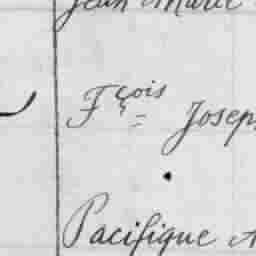 Jean Marie
Fçois Josep
Pacifique